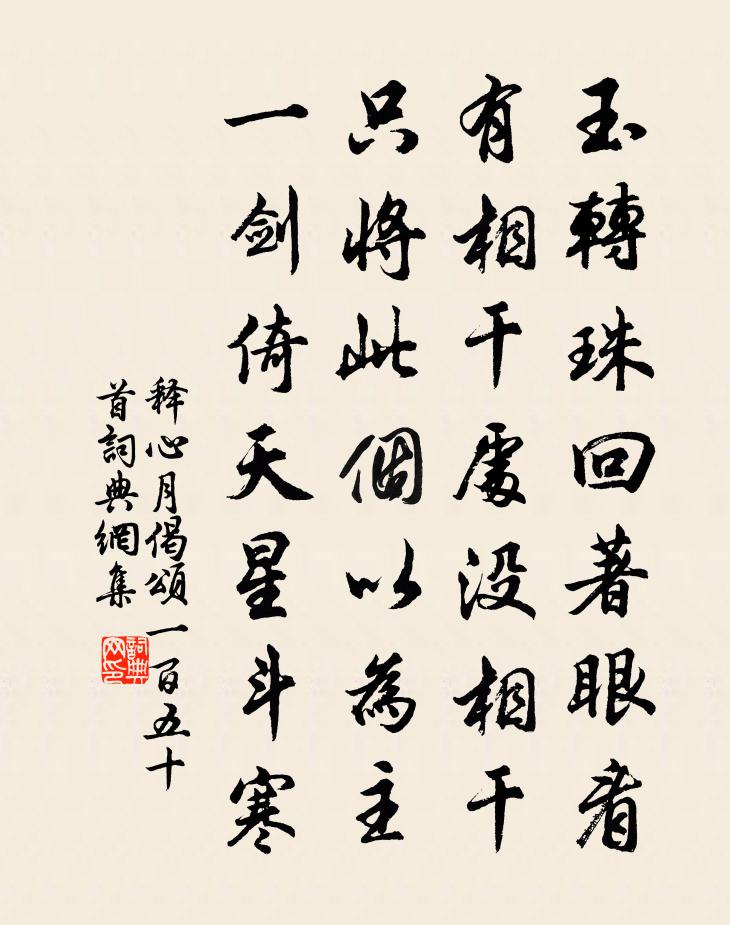 玉轉珠回著眼看
有相干處没相干
只將此個以為主
一劍倚天星斗寒
释心月偈頌一百五十
首詞典網集
詞典网印